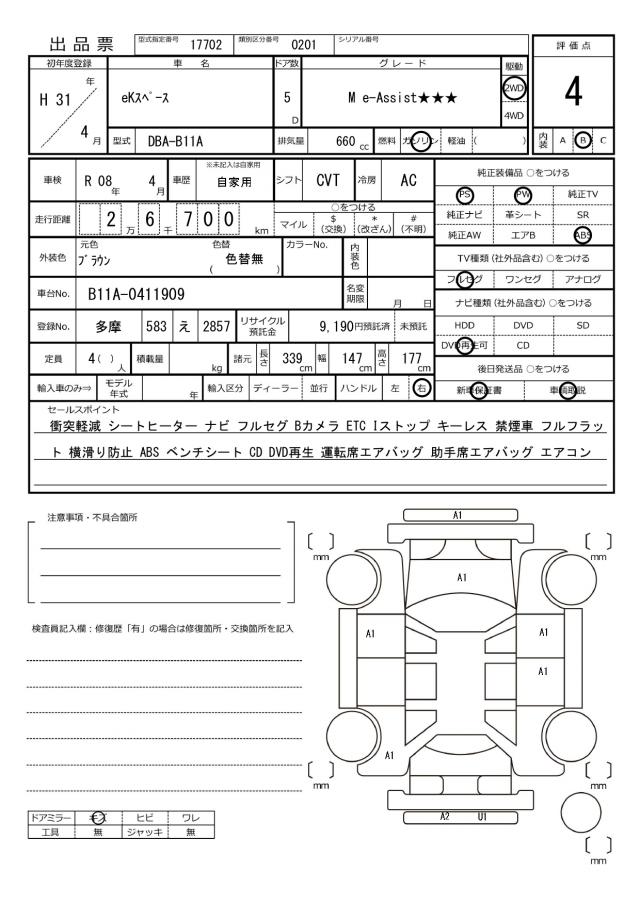 出品票 型式指定番号 17702 類別区分番号 0201 シリアル番号
評価点
4
内装 A B C
初年度登録 車名 ドア数 グレード 駆動
H 31 年 4 月 eKスペース 5 D M e-Assist★★★ 2WD 4WD
型式 DBA-B11A 排気量 660 cc 燃料 ガソリン 軽油 ( )
車検 R 08 年 4 月 車歴 ※未記入は自家用 自家用 シフト CVT 冷房 AC
走行距離 2 万 6 千 7 0 0 km
○をつける
マイル $ (交換) * (改ざん) # (不明)
外装色 元色 ブラウン 色替 ( 色替無 ) カラーNo. 内装色
車台No. B11A-0411909 名変期限 月 日
登録No. 多摩 583 え 2857 リサイクル預託金 9,190円預託済 未預託
定員 4 ( ) 人 積載量 kg 諸元 長さ 339 cm 幅 147 cm 高さ 177 cm
輸入車のみ⇒ モデル年式 年 輸入区分 ディーラー 並行 ハンドル 左 右
純正装備品 ○をつける
PS PW 純正TV
純正ナビ 革シート SR
純正AW エアB ABS
TV種類(社外品含む) ○をつける
フルセグ ワンセグ アナログ
ナビ種類(社外品含む) ○をつける
HDD DVD SD
DVD再生可 CD
後日発送品 ○をつける
新車保証書 車輌取説
セールスポイント
衝突軽減 シートヒーター ナビ フルセグ Bカメラ ETC Iストップ キーレス 禁煙車 フルフラッ
ト 横滑り防止 ABS ベンチシート CD DVD再生 運転席エアバッグ 助手席エアバッグ エアコン
注意事項・不具合箇所
検査員記入欄：修復歴「有」の場合は修復箇所・交換箇所を記入
A1
〔 〕 mm 〔 〕 mm
A1
A1 A1
A1
A1
〔 〕 mm 〔 〕 mm
A2 U1
〔 〕 mm
ドアミラー キズ ヒビ ワレ
工具 無 ジャッキ 無